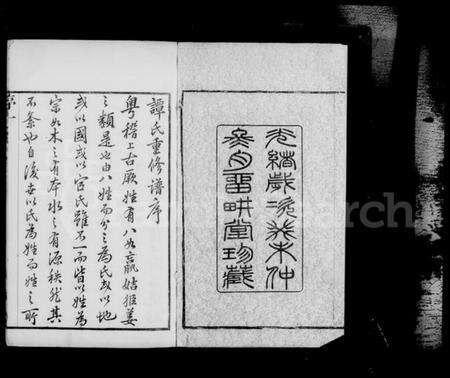 光緒歲次癸未仲
冬月畱畊堂珍藏
譚氏重修譜序
粵稽上古厥姓有八如嬴姞姬姜
之類是也由八姓而分之為氏或以地
或以國或以官氏雖不一而皆以姓為
宗如木之有本水之有源秩然其
不紊也自後世以氏為姓而姓之所